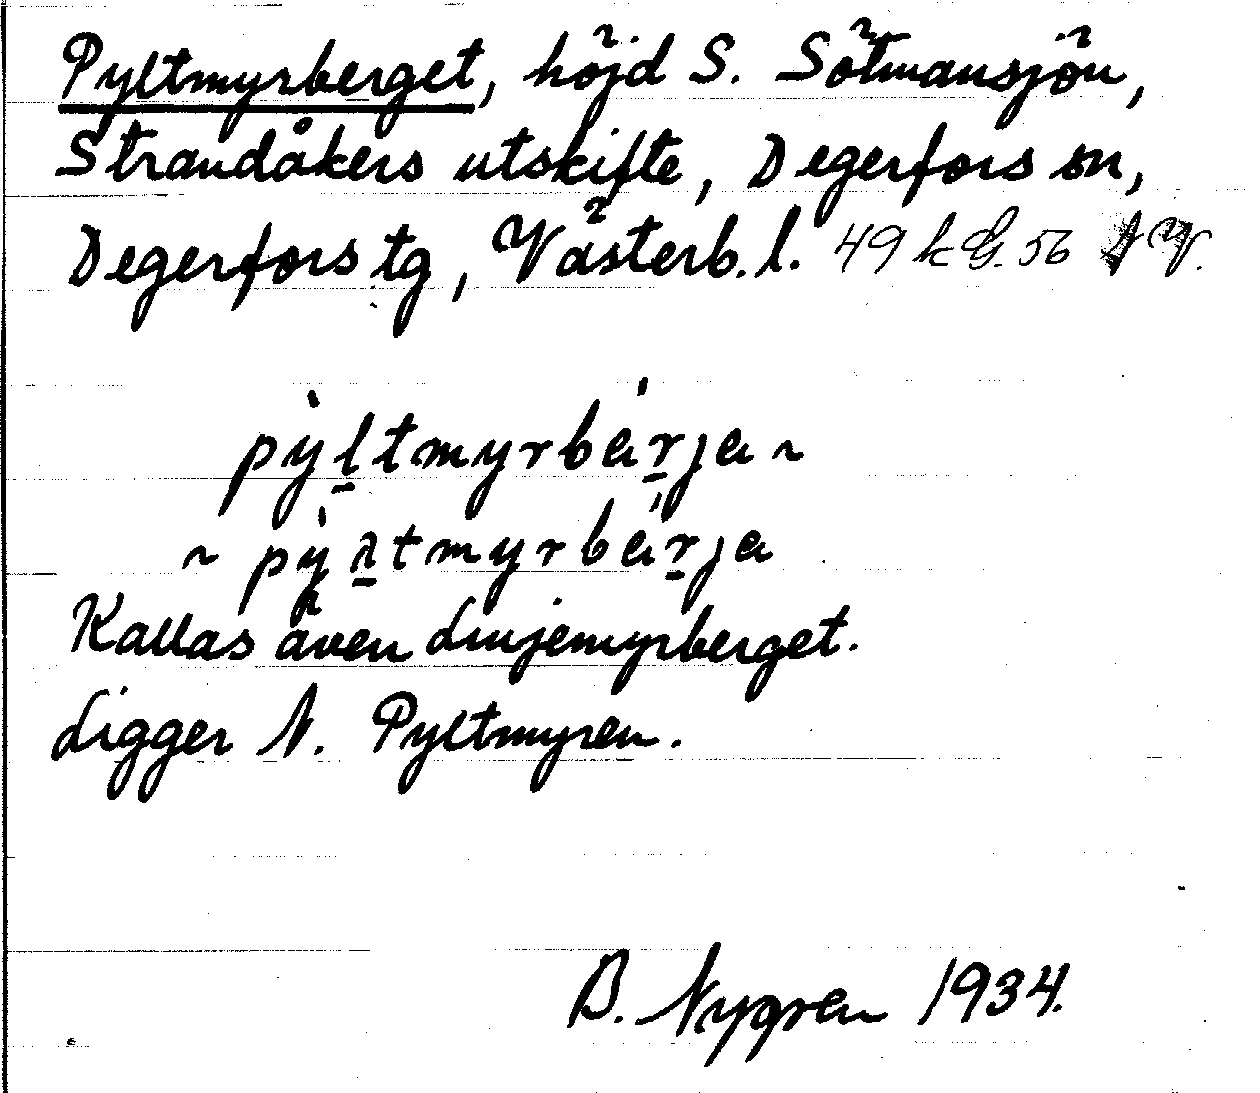 Pyltmyrberget, höjd S. Sötmansjön,
Strandåkers utskifte, Degerfors sn,
Degerfors tg, Västerb. l. 49 k G. 56
pỳ̠ltmyrbár̠ja ~
~ pỳɽtmyrbár̠ja
Kallas även Linjemyrberget.
Ligger N. Pyltmyren.
B. Nygren 1934.